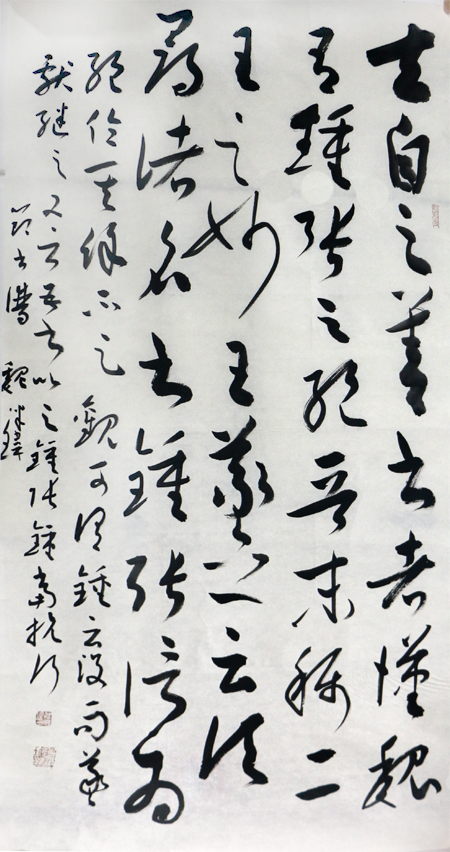 夫自之善書者漢魏
有鍾張之絕晉末稱二
王之妙王羲之云頃
尋諸名書鍾張信為
絕倫其餘不足觀可謂鍾云沒而羲
獻繼之又云吾書比之鍾張鍾當抗行
節書譜 魏